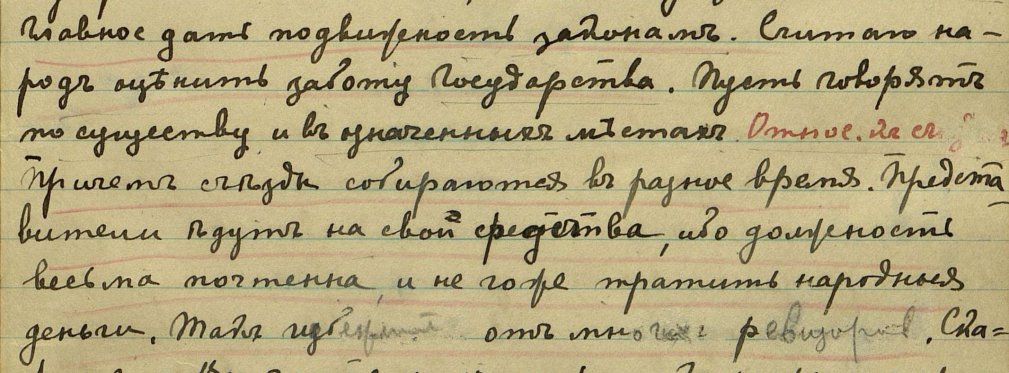 главное дать подвижность законамъ. Считаю на-
родъ оцѣнитъ заботу Государства. Пусть говорятъ
по существу и въ означенныхъ мѣстахъ.
Причемъ съѣзды собираются въ разное время. Предста
вители ѣдутъ на свои средства, ибо должность
весьма почтенна, и не гоже тратить народныя
деньги. отъ многихъ ревизоровъ. Ска=